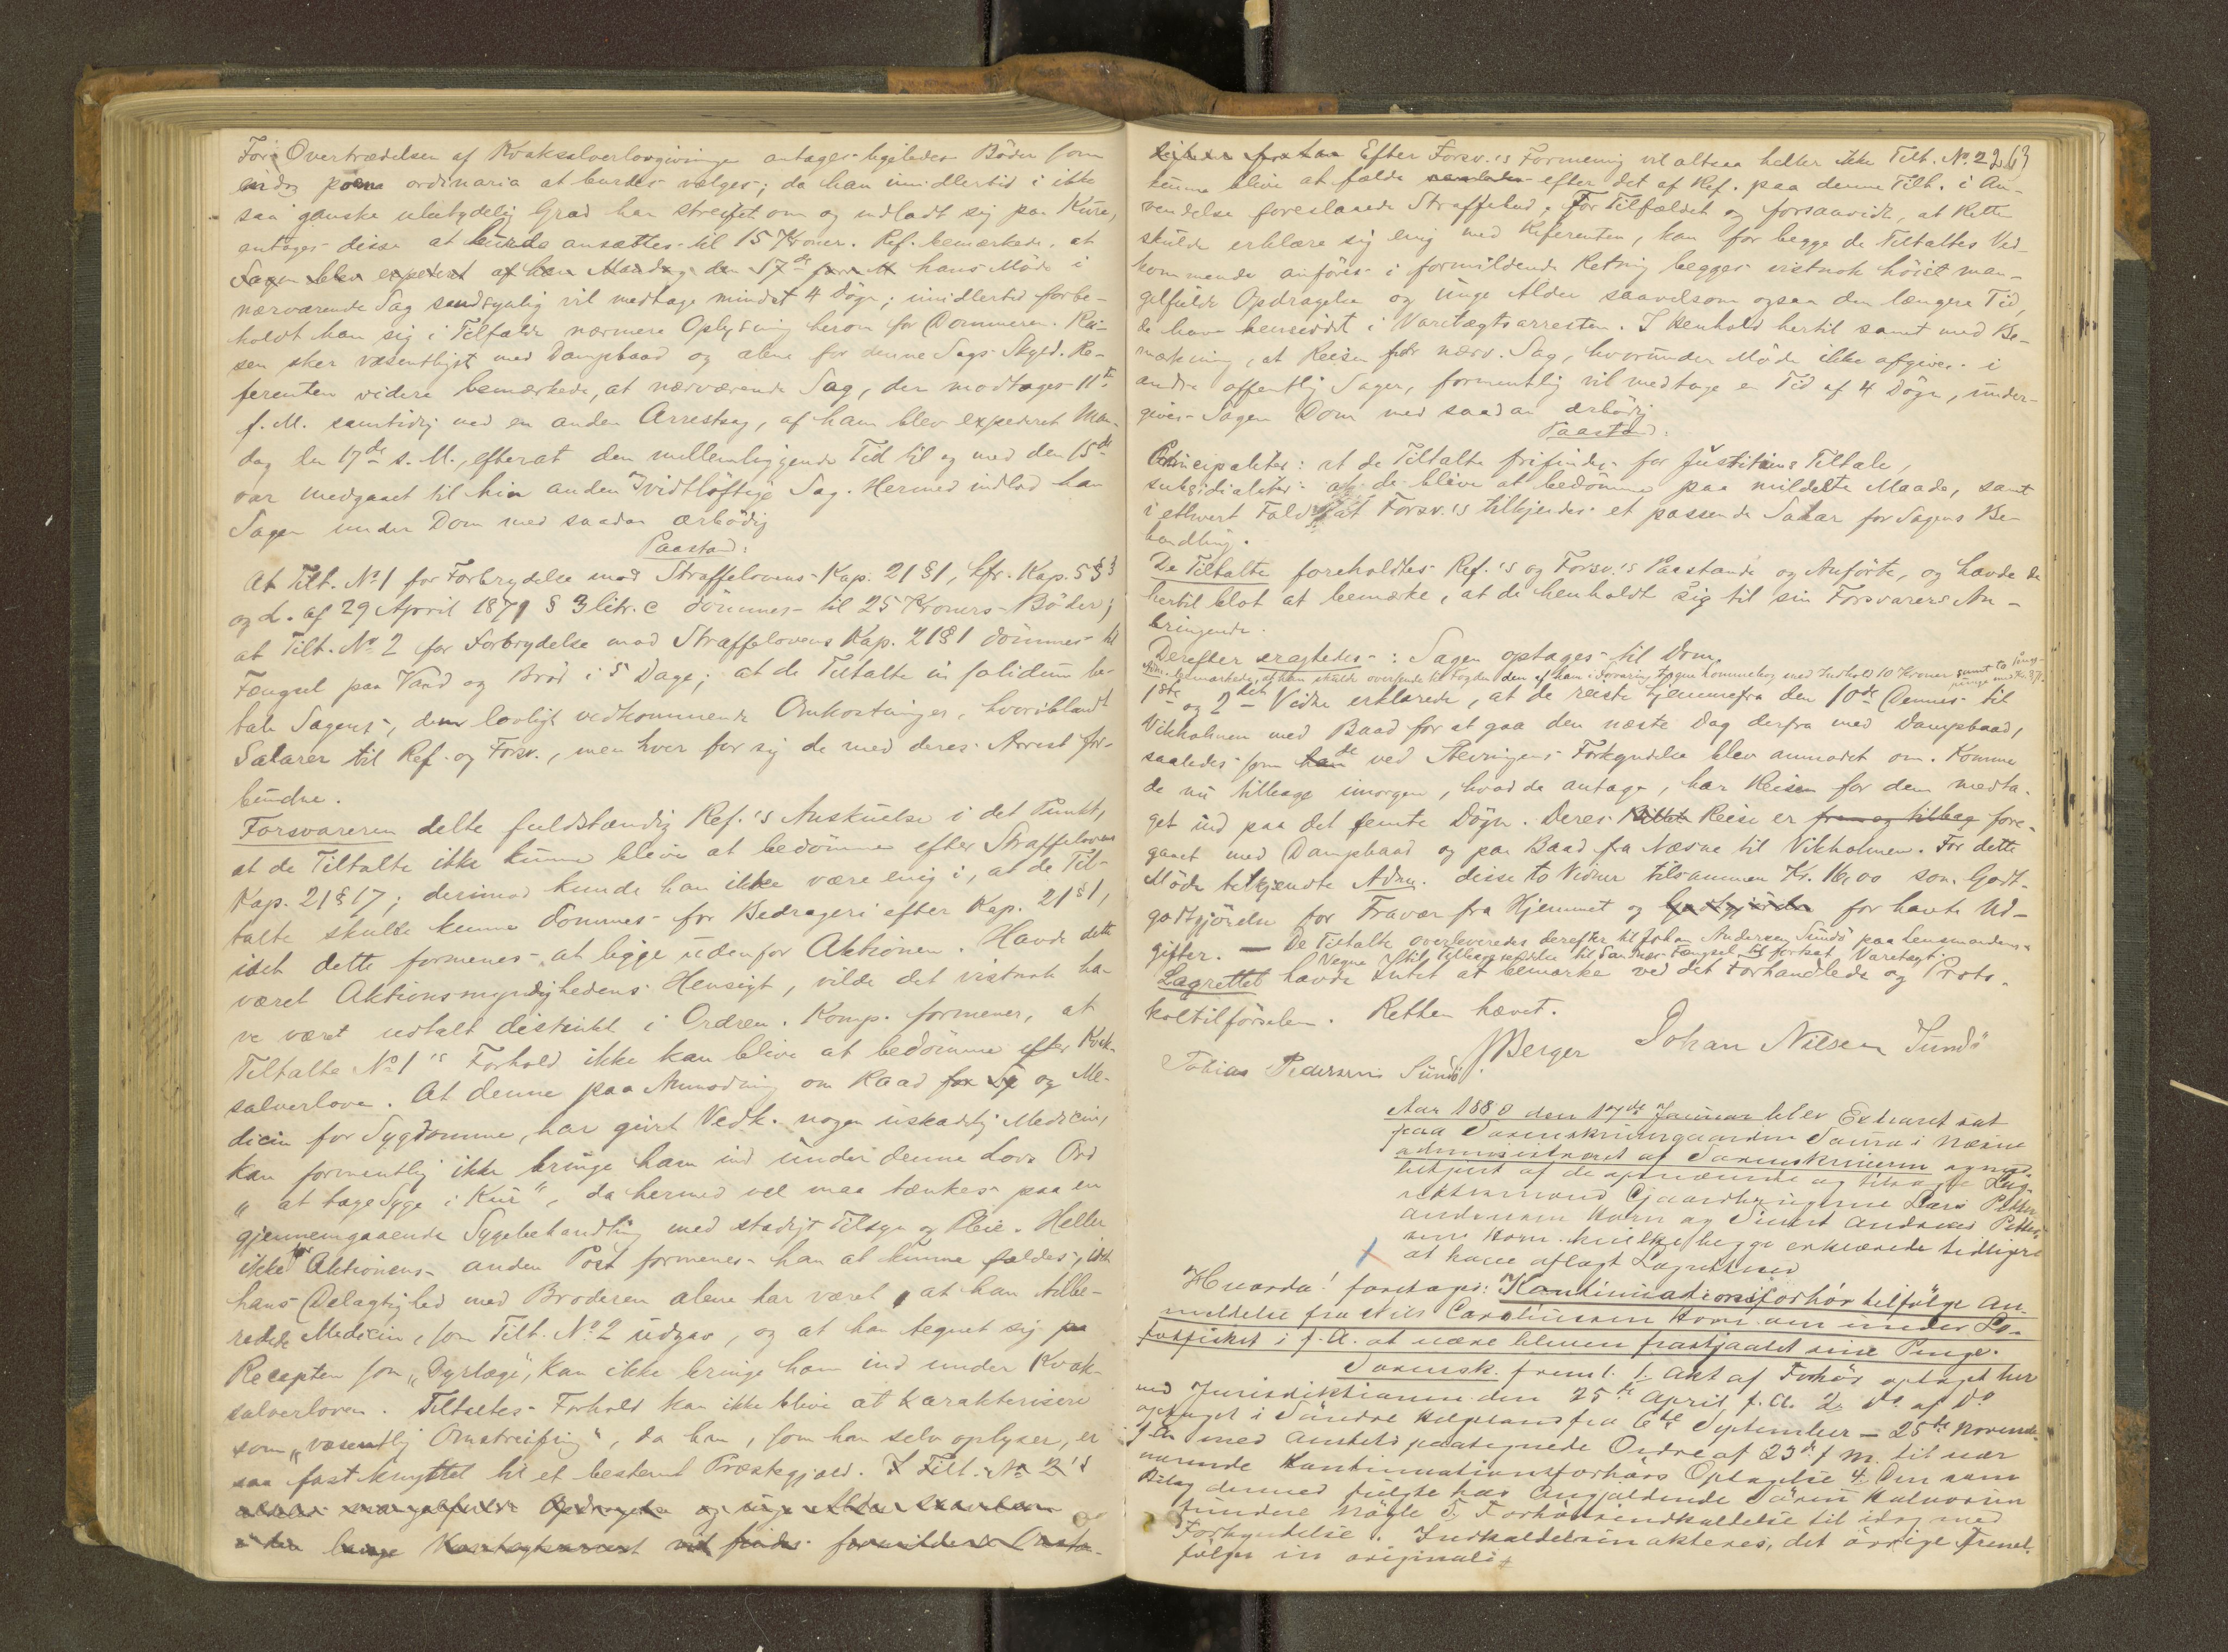 For Overtrædelsen af Kvaksalverlovgivningen antages ligeledes Bøder som
endog poena ordinaria at burde vælges; da han imidlertid i ikke
saa ganske ubetydelig Grad har streifet om og indladt sig paa Kure,
antages disse at burde ansættes til 15 Kroner. Ref. bemærkede, at
Sagen blev expederet af ham Mandag den 17de hans Møde i
nærværende Sag sandsynlig vil medtage mindst 4 Døgn; imidlertid forbe-
holdt han sig i Tilfælde nærmere Oplysning herom for Dommeren. Rei-
sen sker væsentligst med Dampbaad og alene for denne Sags Skyld. Re-
ferenten videre bemærkede, at nærværende Sag, der modtoges 11te
f. M. samtidig med en anden Arrestsag, af ham blev expederet Man-
dag den 17de s. M., efterat den mellemliggende Tid til og med den 15de
var medgaaet til hin anden vidtløftige Sag. Hermed indlod han
Sagen under Dom med saadan ærbødig
Paastand:
At Tilt. No 1 for Forbrydelse mod Straffelovens Kap. 21 § 1, cfr. Kap. 5 § 3
og L. af 29 April 1871 § 3 litr. c dømmes til 25 Kroners Bøder;
at Tilt. No 2 for Forbrydelse mod Straffelovens Kap. 21 § 1 dømmes til
Fængsel paa Vand og Brød i 5 Dage; at de Tiltalte in solidum be-
tale Sagens, dem lovligt vedkommende Omkostninger, hvoriblandt
Salærer til Ref. og Forsv., men hver for sig de med deres Arrest for-
bundne.
Forsvareren delte fuldstændig Ref.'s Anskuelse i det Punkt,
at de Tiltalte ikke kunne blive at bedømme efter Straffelovens
Kap. 21 § 17; derimod kunde han ikke være enig i, at de Til-
talte skulde kunne dømmes for Bedrageri efter Kap. 21 § 1,
idet dette formenes at ligge udenfor Aktionen. Havde dette
været Aktionsmyndighedens Hensigt, vilde det vistnok ha-
ve været udtalt distinkt i Ordren. Komp. formener, at
Tiltalte No 1's Forhold ikke kan blive at bedømme efter Kvak-
salverloven. At denne paa Anmodning om Raad for Sy og Me-
dicin for Sygdomme, har givet Vedk. nogen uskadelig Medicin,
kan formentlig ikke bringe ham ind under denne Lovs Ord
"at tage Syge i Kur", da hermed vel maa tænkes paa en
gjennemgaaende Sygebehandling med stadigt Tilsyn og Pleie. Heller
ikke for Aktionens anden Post formenes han at kunne fældes, idet
hans Delagtighed med Broderen alene har været, at han tilbe-
redede Medicin, som Tilt. No 2 udgav, og at han tegnet sig paa
Recepten som "Dyrlæge", kan ikke bringe ham ind under Kvak-
salverloven. Tiltaltes Forhold kan ikke blive at karakterisere
som "væsentlig Omstreifing", da han, som han selv oplyser, er
saa fast knyttet til et bestemt Præstegjæld. I Tilt. No 2's
mangelfulde Opdragelse og unge Alder saavelsom
lange Varetægtsarrest vil findes formildende
263
Efter Forsv.'s Formening vil altsaa heller ikke Tilt. No 2
kunne blive at fælde efter det af Ref. paa denne Tilt. i An-
vendelse foreslaaede Straffebud. For Tilfældet og forsaavidt, at Retten
skulde erklære sig enig med Referenten, kan for begge de Tiltaltes Ved-
kommende anføres i formildende Retning begges vistnok høist man-
gelfulde Opdragelse og unge Alder saavelsom ogsaa den længere Tid,
de have henseddet i Varetægtsarresten. I Henhold hertil samt med Be-
mærkning, at Reisen for nærv. Sag, hvorunder Møde ikke afgives i
andre offentlig Sager, formentlig vil medtage en Tid af 4 Døgn, under-
gives Sagen Dom med saadan ærbødig
Paastand:
Principaliter: at de Tiltalte frifindes for Justitiens Tiltale,
subsidialiter: at de blive at bedømme paa mildeste Maade, samt
i ethvert Fald at Forsv.'s tilkjendes et passende Salær for Sagens Be-
handling.
De Tiltalte foreholdtes Ref.'s og Forsv.'s Paastande og Anførte, og havde de
hertil blot at bemærke, at de henholdt sig til sin Forsvarers An-
bringende.
Derefter eragtedes: Sagen optages til Dom.
Adm. bemærkede, at han skulde oversende til Fogden den af ham i Forvaring tagne Lommebog med Indhold 10 Kroner samt to
1ste og 2det Vidne erklærede, at de reiste hjemmefra den 10de Dennes til
Vikholmen med Baad for at gaa den næste Dag derfra med Dampbaad,
saaledes som de ved Stevningens Forkyndelse blev anmodet om. Komme
de nu tilbage imorgen, hvad de antage, har Reisen for dem medta-
get ind paa det femte Døgn. Deres Reise er frem og tilbag fore-
gaaet med Dampbaad og paa Baad fra Næsne til Vikholmen. For dette
Møde tilkjendte Adm. disse to Vidner tilsammen Kr. 16,00 som Godt-
godtgjørelse for Fravær fra Hjemmet og Godtgjørelse for havte Ud-
gifter. — De Tiltalte overleveredes derefter til Johan Andersen Sundø paa Lensmandens
Vegne til Tilbagesendelse til Fængsel til fortsat Varetægt.
Lagrettet havde Intet at bemærke ved det Forhandlede og Proto-
koltilførselen. Retten hævet.
Berger Johan Nilsen Sundø
Tobias Pedersen Sundø
Aar 1880 den 17de Januar blev Extraret sat
paa Sorenskrivergaarden Saura i Næsne
administreret af Sorenskriveren og med-
betjent af de opnævnte og tilsagte Lag-
rettesmænd Gaardbrugerne Lars Petter
Andersen Horn og Sivert Andreas Petter-
sen Horn hvilke begge erklærede tidligere
at have aflagt Lagretteseed
Hvorda! foretages: Kontinuationsforhør tilfølge An-
meldelse fra Nils Carolinusen Horn om under Lo-
fotfisket i f. A. at være bleven frastjaalet sine Penge.
Sorensk. freml. 1. Akt af Forhør optaget her
ved Jurisdiktionen den 25de April f. A. 2. do af do
optaget i Søndre Helgeland fra 6te September — 25de November
f. A. med Amtets paategnede Ordre af 23de f. M. til nær-
værende Kontinuationsforhørs Optagelse 4. Den som
Bilag dermed fulgte
5. Forhørsindkaldelse til idag med
Forkyndelse. Indkaldelsen akteres, det øvrige freml.
følger in originali